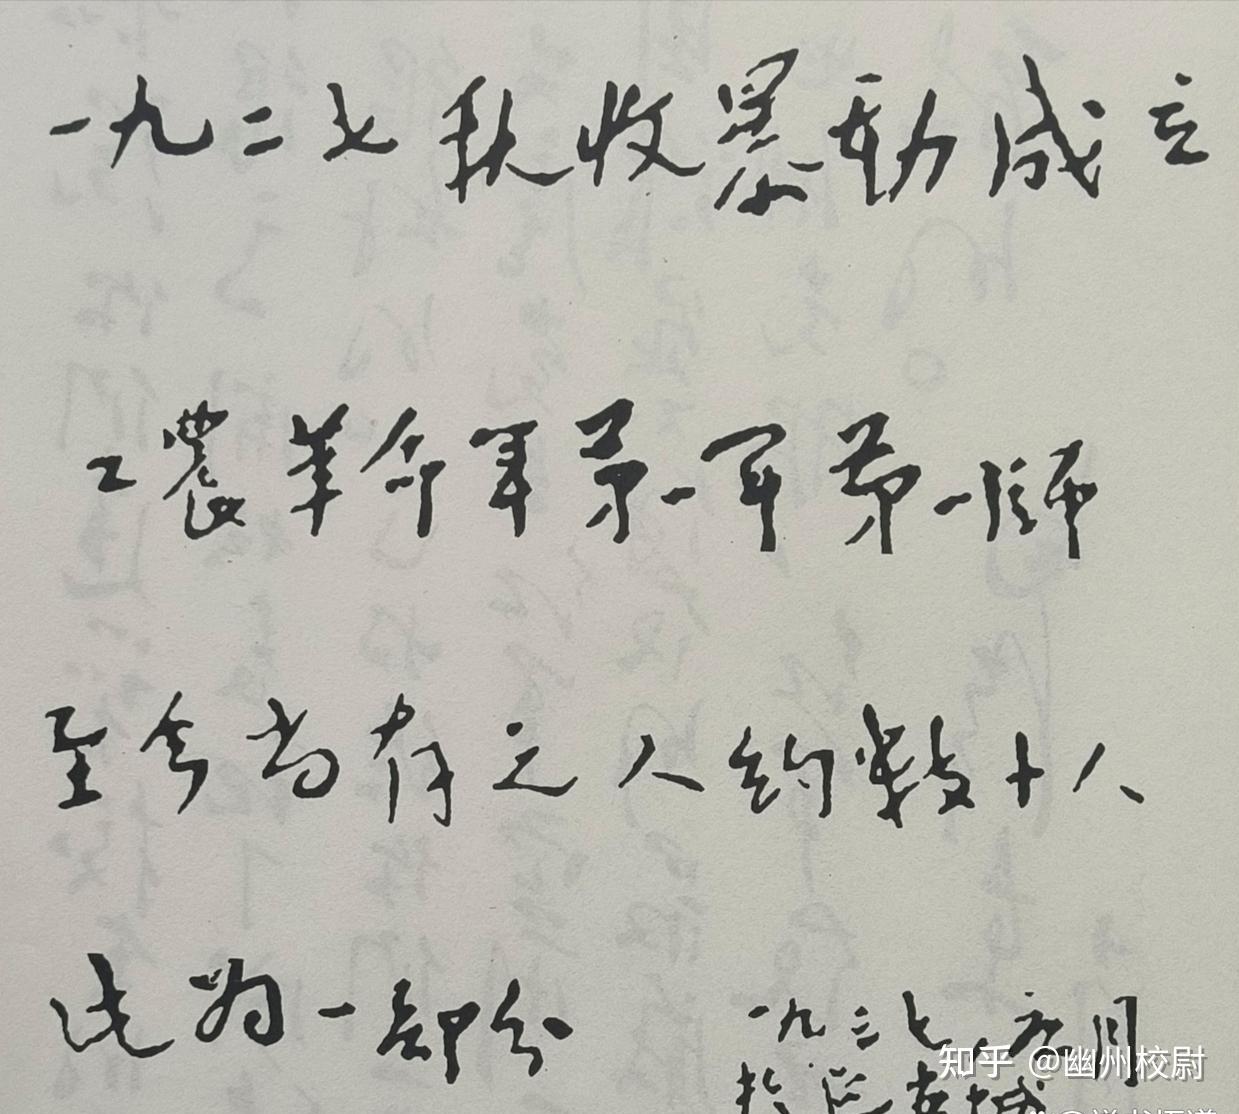 一九二七秋收暴動成立
工農革命軍第一軍第一師
至今尚存之人約數十人
此為一部份
一九三七，六月
於延安城
知乎 @幽州校尉